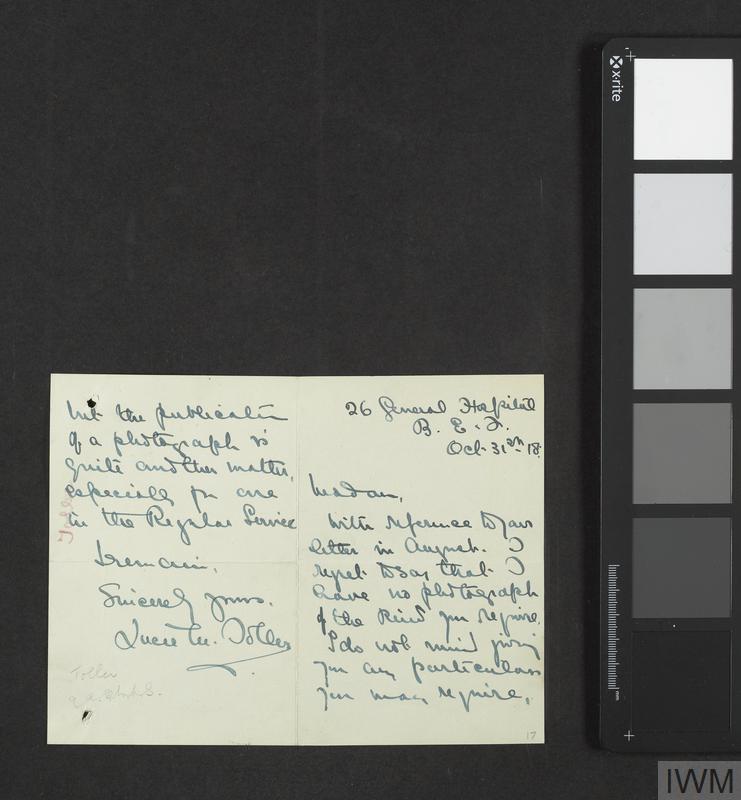 26 General Hospital
B. E. F.
Oct. 31st 18.
Madam,
With reference to your
letter in August. I
regret to say that I
have no photograph
of the kind you require.
I do not mind giving
you any particulars
you may require,
but the publication
of a photograph is
quite another matter,
especially for one
in the Regular Service
I remain,
Sincerely yours,
Lucie M. Toller
Toller
Toller
17
x-rite
mm
IWM